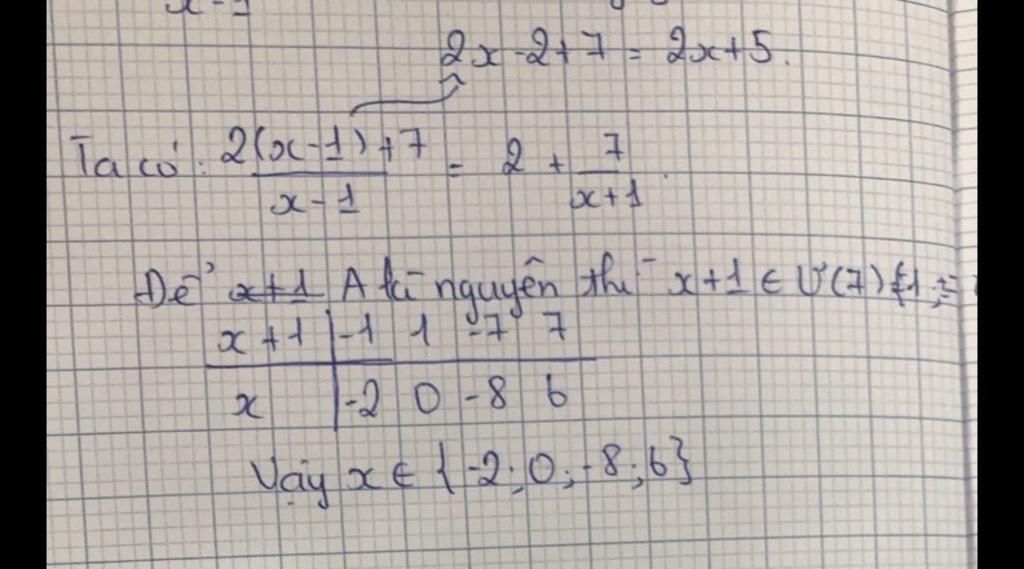 x-1
2x-2+7 = 2x+5.
Ta có: 2(x-1)+7 / x-1 = 2 + 7 / x+1.
Để x+1 A là nguyên thì x+1 ∈ Ư(7) {1;
x+1 | -1 1 -7 7
x | -2 0 -8 6
Vậy x ∈ {-2; 0; -8; 6}